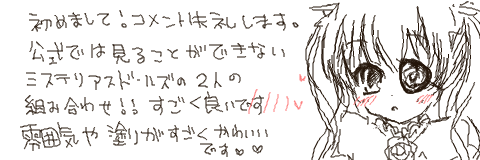 初めまして!コメント失礼します。
公式では見ることができない
ミステリアスドールズの2人の
組み合わせ!!すごく良いです
雰囲気や塗りがすごくかわいい
です♡♡